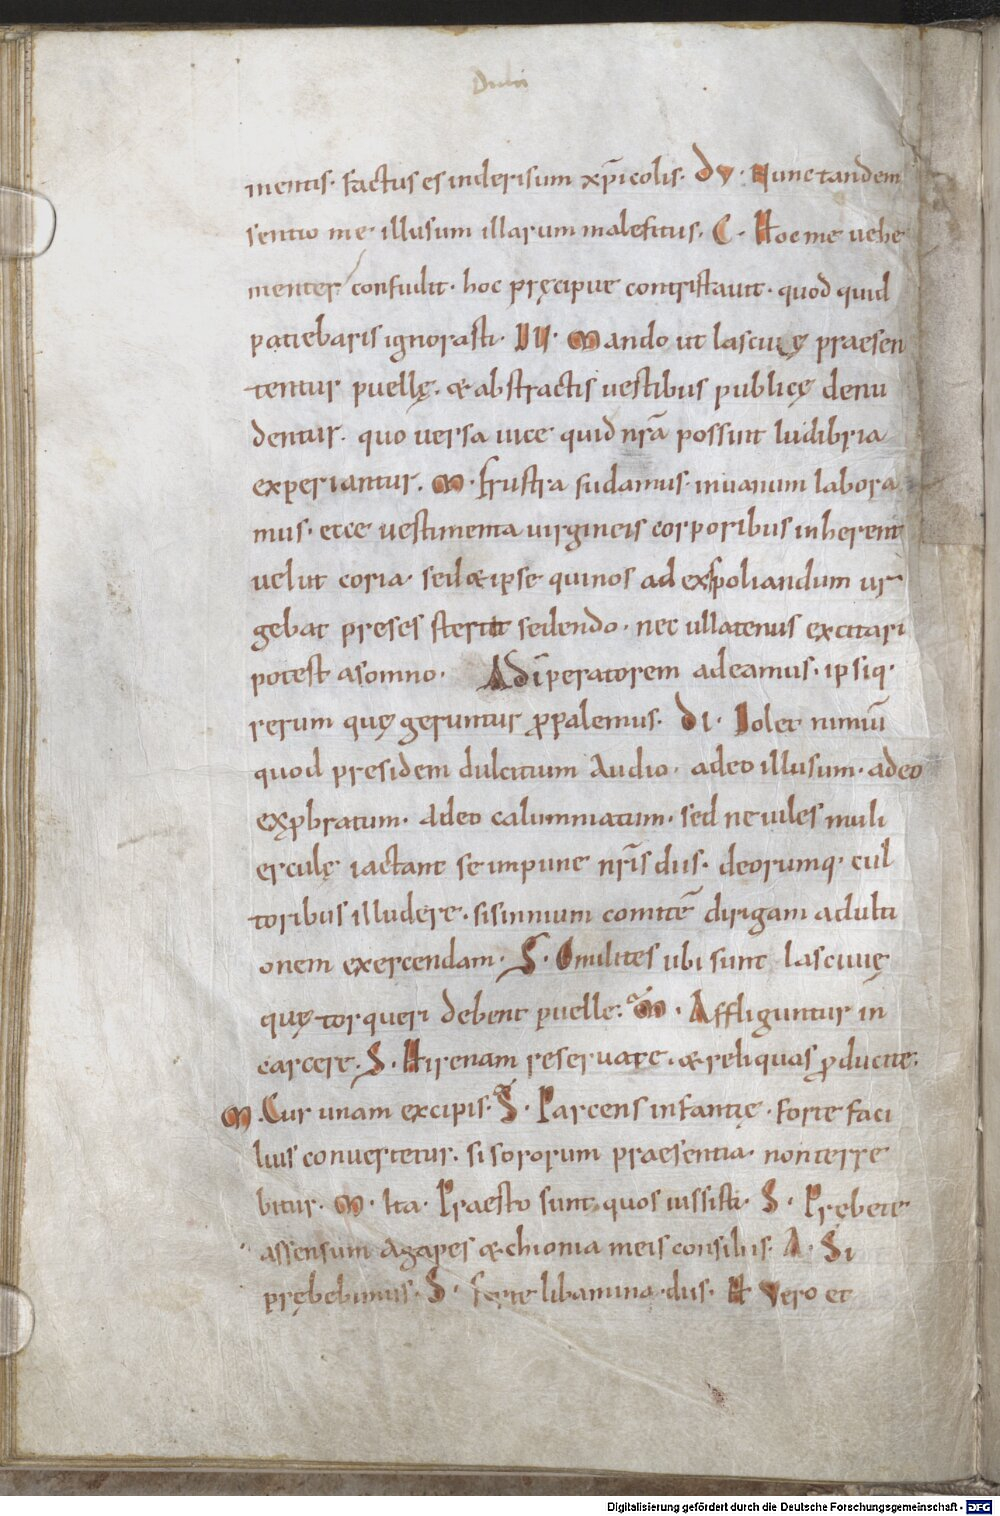 mentis. factus es inderisum xp̄icolis. dv. Nunc tandem
sentio me illusum illarum maleficiis. C. Hoc me vehe
menter confudit. hoc pręcipue contristavit. quod quid
patiebaris ignorasti. DV. Mando ut lascivę praesen
tentur puellę. & abstractis vestibus publicę denu
dentur. quo versa vice quid nr̄a possint ludibria
experiantur. M. frustra sudamus. invanum labora
mus. ecce vestimenta virgineis corporibus inherent
velut coria. sed & ipse qui nos ad expoliandum ur
gebat preses stertit sedendo. nec ullatenus excitari
potest asomno. Ad īperatorem adeamus. ipsiq.
rerum quę geruntur ꝓpalemus. di. Dolet nimiū
quod presidem dulcitium audio. adeo illusum. adeo
exꝓbratum. adeo calumniatum. sed ne viles muli
erculę iactant se impune nr̄is diis. deorumq. cul
toribus illudere. sisinnium comitē dirigam ad ulti
onem exercendam. S. O milites ubi sunt lascivę
quę torqueri debent puelle. M. Affliguntur in
carcere. S. Hirenam reservate. & reliquas ꝓducite.
M. Cur unam excipis. S. Parcens infantię. forte faci
lius convertetur. si sororum praesentia. non terre
bitur. M. Ita. Praesto sunt quos iussisti. S. Prębete
assensum agapes & chionia meis consiliis. A. Si
prębebimus. S. ferte libamina. diis. H Vero et
Digitalisierung gefördert durch die Deutsche Forschungsgemeinschaft - DFG